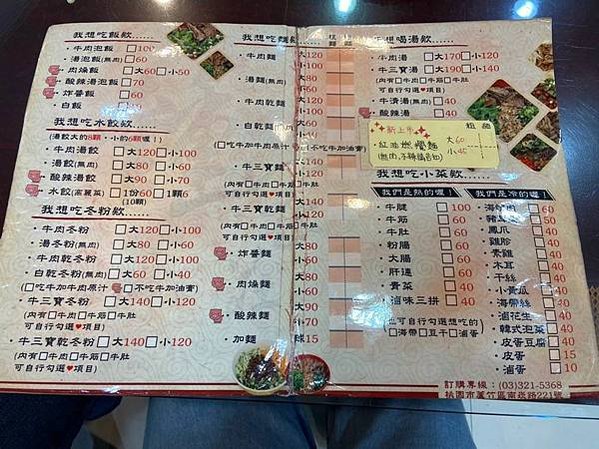 我想吃飯欸......
牛肉泡飯 □100
湯泡飯(無肉) □60
肉燥飯 □大60 □小50
酸辣湯泡飯 □70
炸醬飯 □60
白飯
我想吃水餃欸......
(湯餃大的8顆，小的6顆喔！)
牛肉湯餃 □大120 □小100
湯餃(無肉) □大80 □小60
酸辣湯餃 □大90 □小70
水餃(高麗菜) □1份60 □1顆6
(10顆)
我想吃冬粉欸......
牛肉冬粉 □大120 □小100
湯冬粉(無肉) □大80 □小60
牛肉乾冬粉 □大120 □小100
白乾冬粉(無肉) □大60 □小40
(□吃牛加牛肉原汁 □不吃牛加油膏)
牛三寶冬粉 □大140 □小120
(內有□牛肉□牛筋□牛肚
可自行勾選♥項目)
牛三寶乾冬粉 □大140 □小120
(內有□牛肉□牛筋□牛肚
可自行勾選♥項目)
我想吃麵欸......
牛肉麵
湯麵(無肉)
牛肉乾麵
白乾麵(無肉)
(□吃牛加牛肉原汁 □不吃牛加油膏)
牛三寶麵
(內有□牛肉□牛筋□牛肚
可自行勾選♥項目)
牛三寶乾麵
(內有□牛肉□牛筋□牛肚
可自行勾選♥項目)
炸醬麵
肉燥麵
酸辣麵
加麵
15
想喝湯欸......
牛肉湯 □大170 □小120
牛三寶湯 □大190 □小140
(內有□牛肉□牛筋□牛肚
可自行勾選♥項目)
牛清湯(無肉) □40
新上市
粗 細
紅油燃麵
大60
小45
我想吃小菜欸......
我們是熱的喔！
牛腱 □100
牛筋 □60
牛肚 □60
粉腸 □60
大腸 □60
肝連 □60
青菜 □40
滷味三拼 □40
(也可自行勾選想吃的
□海帶□豆干□滷蛋)
我們是冷的喔！
60
鳳爪
雞胗
素雞
木耳 □40
干絲 □40
小黃瓜 □40
海帶絲 □40
滷花生 □40
韓式泡菜 □40
皮蛋豆腐 □40
皮蛋 □15
滷蛋 □10
訂購專線：(03)321-5368
桃園市蘆竹區南崁路221號